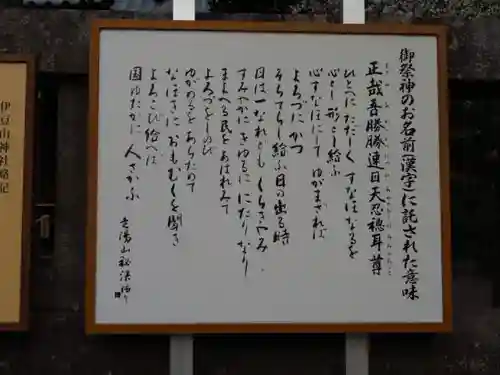 御祭神のお名前(漢字)に託された意味
正哉吾勝勝連日天忍穂耳尊
ひとへにただしく すなほなるを
心とし形とし給ふ
心すなほにして ゆがまざれば
よろづにかつ
そらてらし給ふ日の出る時
日は一なれども くらきやみ
すみやかに きゆるに にたり
まよへる民をあはれみて
よろづをしのび
ゆがめるをあらためて
なほきに おもむくを聞き
よろこび給へば
国ゆたかに 人さかふ
伊豆山神社略記